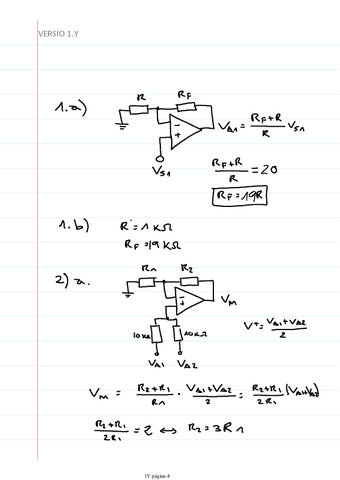 VERSIO 1.Y
1.a)
R
RF
VA1 = (RF+R)/R VS1
VS1
(RF+R)/R = 20
RF = 19R
1.b) R = 1 KΩ
RF = 19 KΩ
2) a.
R1 R2
VM
V+ = (VA1+VA2)/2
10KΩ 10KΩ
VA1 VA2
VM = (R2+R1)/R1 · (VA1+VA2)/2 = (R2+R1)/2R1 (VA1+VA2)
(R2+R1)/2R1 = 2 ↔ R2 = 3R1
1Y página 4